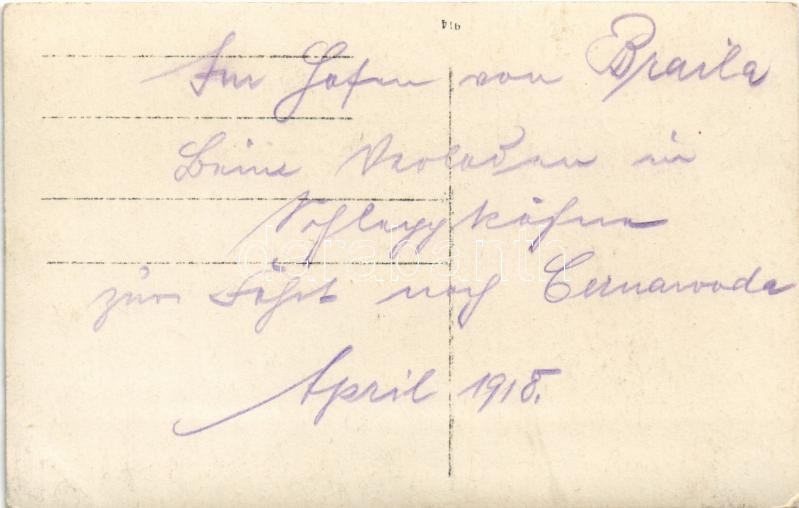 Im Hafen von Braila
Beim Verladen in
Schleppkähne
zur Fahrt nach Cernawoda
April 1918.
darabanth